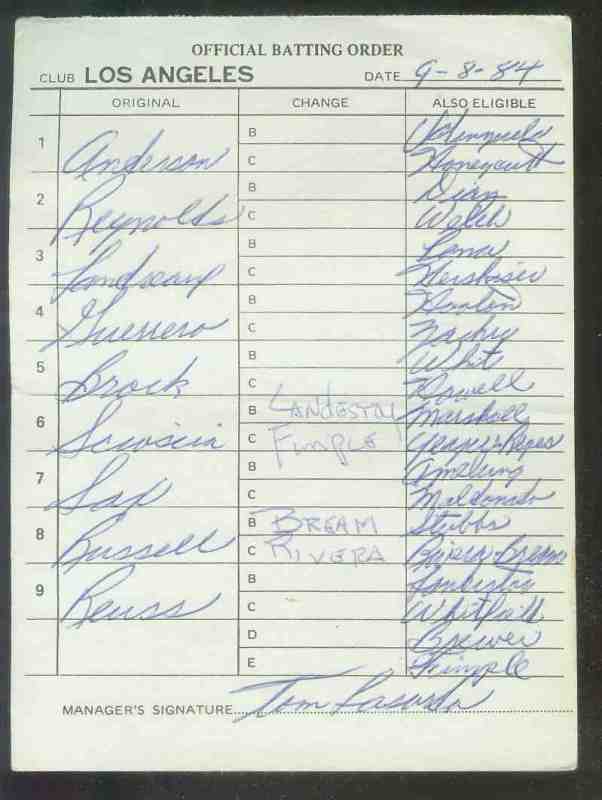 OFFICIAL BATTING ORDER
CLUB LOS ANGELES DATE 9-8-84
ORIGINAL CHANGE ALSO ELIGIBLE
1 Anderson B Valenzuela
C Honeycutt
2 Reynolds B Diaz
C Welch
3 Landreaux B Pena
C Hershiser
4 Guerrero B Hooton
C Zachry
5 Brock B White
C Howell
6 Scioscia B LANDESTOY Marshall
C FIMPLE Yeager-Reyes
7 Sax B Amelung
C Maldonado
8 Russell B BREAM Stubbs
C RIVERA Rivera-Bream
9 Reuss B Landestoy
C Whitfield
D Brewer
E Fimple
MANAGER'S SIGNATURE Tom Lasorda